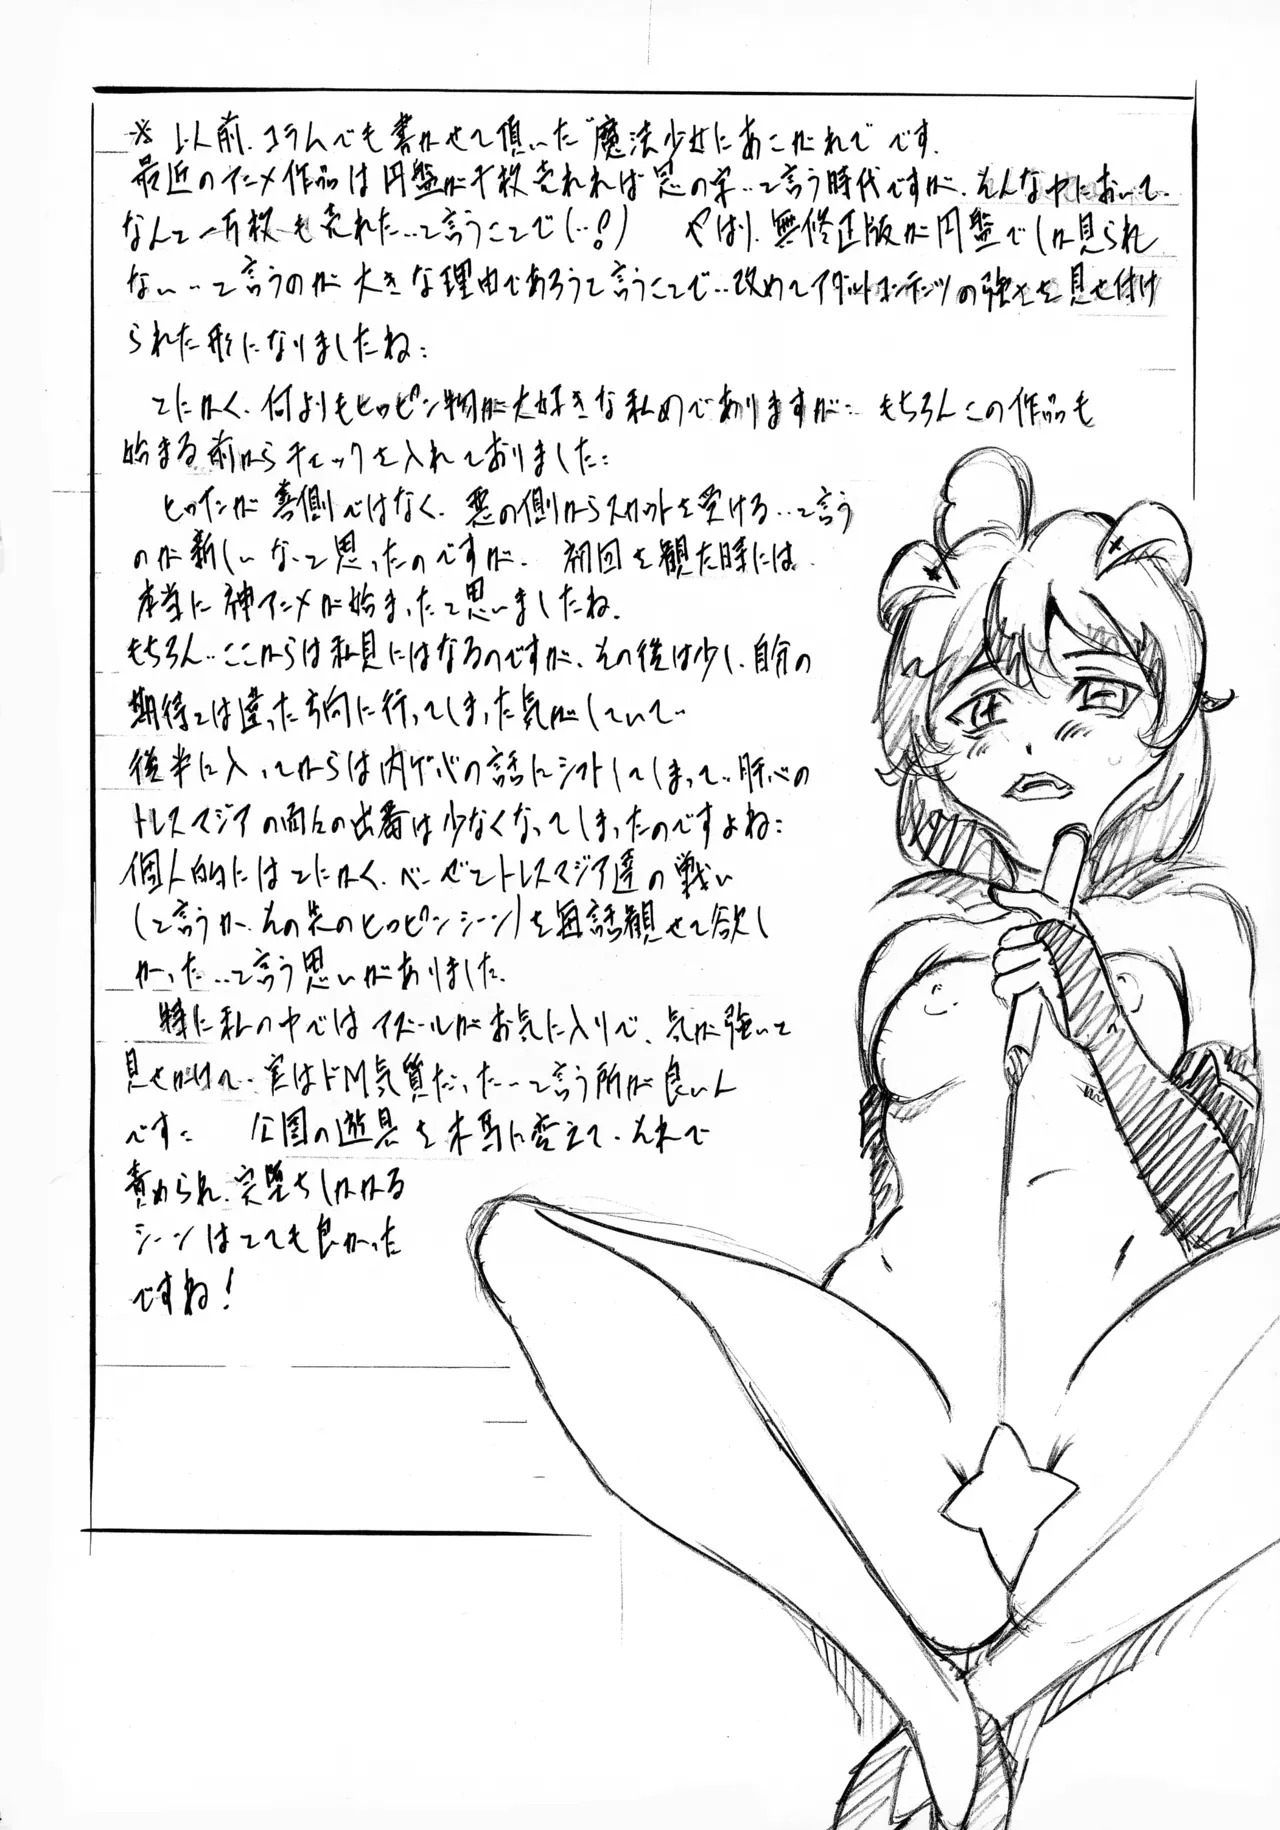 ※以前、コラムでも書かせて頂いた“魔法少女にあこがれて”です。
最近のアニメ作品は円盤が千枚売れれば恩の字‥って言う時代ですが、そんな中において、
なんと一万枚も売れた‥って言うことで(‥!) やはり、無修正版が円盤でしか見られ
ない‥って言うのが大きな理由であろうと言うことで‥改めてアダルトコンテンツの強さを見せ付け
られた形になりましたね:
とにかく、何よりもヒロピン物が大好きな私めでありますが: もちろんこの作品も
始まる前からチェックを入れておりました:
ヒロインが善側ではなく、悪の側からスカウトを受ける‥って言う
のが新しいなって思ったのですが、初回を観た時には、
本当に神アニメが始まったと思いましたね。
もちろん‥ここからは私見にはなるのですが、その後は少し、自分の
期待とは違った方向に行ってしまった気がしていて‥
後半に入ってからは内ゲバの話にシフトしてしまって‥肝心の
トレスマジアの面々の出番は少なくなってしまったのですよね:
個人的にはとにかく、ベーゼとトレスマジア達の戦い
(って言うか、その先のヒロピンシーン)を毎話観せて欲し
かった‥って言う思いがありました。
特に私の中ではアズールがお気に入りで、気が強いと
見せかけて、実はドM気質だった‥って言う所が良いん
です: 公園の遊具を木馬に変えて、それで
責められ、実堕ちしかかる
シーンはとても良かった
ですね!